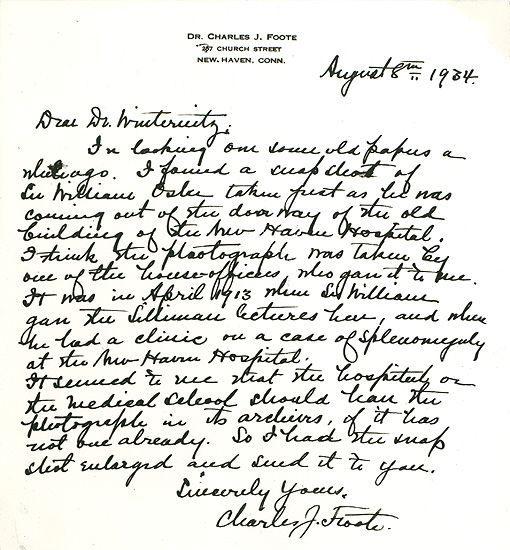 DR. CHARLES J. FOOTE
CHURCH STREET
NEW HAVEN, CONN.
August 8th 1934.
Dear Dr. Winternitz,
In looking over some old papers a
while ago. I found a snap shot of
Sir William Osler taken just as he was
coming out of the door way of the old
building of the New Haven Hospital.
I think the photograph was taken by
one of the house officers, who gave it to me.
It was in April 1913 when Sir William
gave the Silliman lectures here, and when
he had a clinic on a case of splenomegaly
at the New Haven Hospital.
It seemed to me that the hospital or
the medical school should have the
photograph in its archives, if it has
not one already. So I had the snap
shot enlarged and send it to you.
Sincerely Yours,
Charles J. Foote.